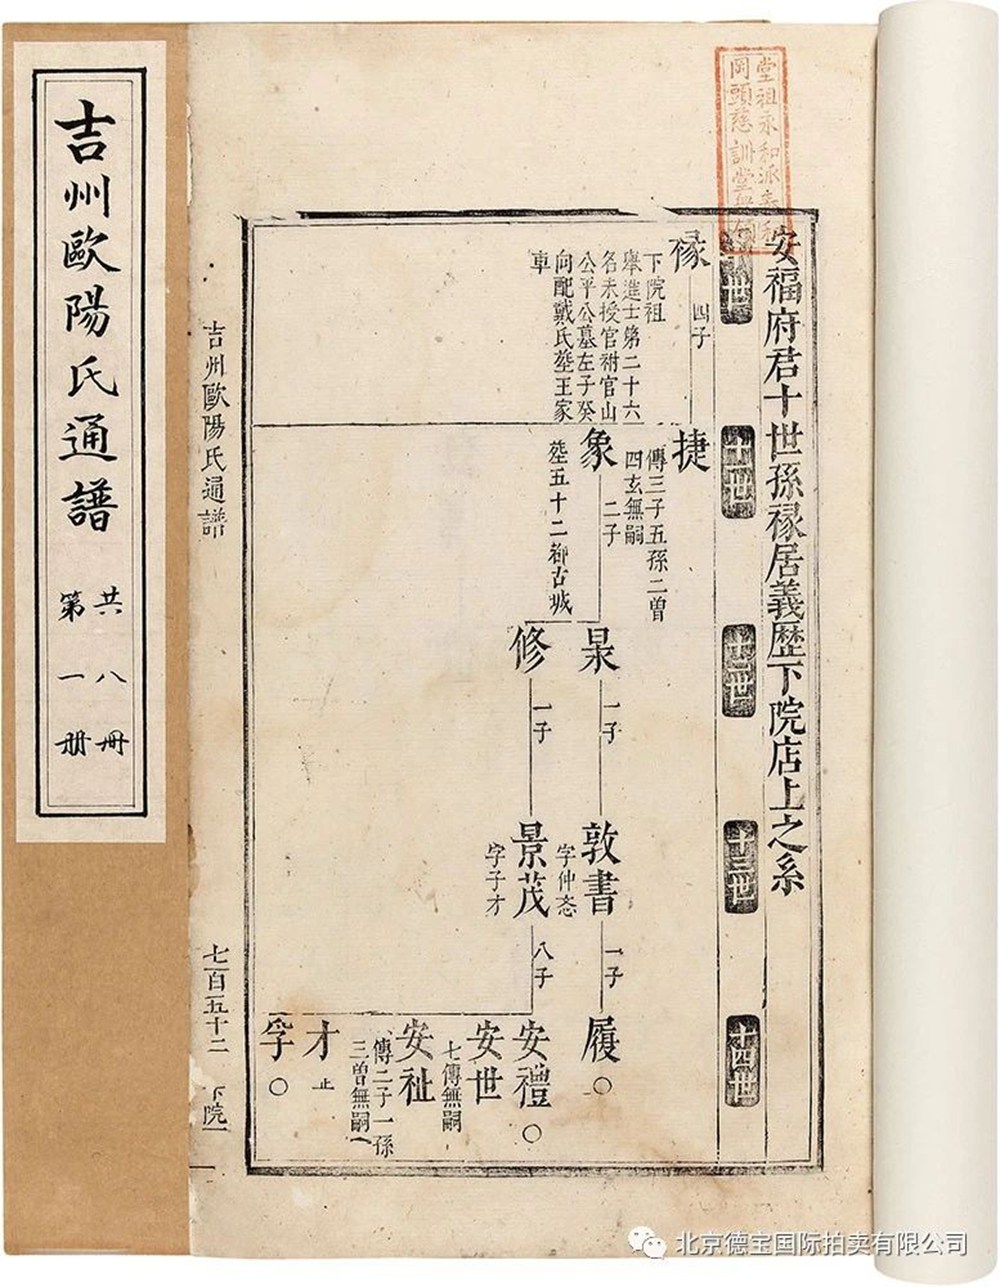 吉州歐陽氏通譜
共八冊
第一册
堂祖永和派
岡頭慈訓堂
安福府君十世孫祿居義歷下院店上之系
世
十一世
十二世
十三世
十四世
祿
四子
下院祖
舉進士第二十六
名未授官祔官山
公平公墓左子癸
向配戴氏塟王家
車
捷
傳三子五孫二曾
四玄無嗣
象
二子
塟五十二都古城
杲
一子
修
一子
敦書
字仲忞
一子
景茂
字子才
八子
履
○
安禮
○
安世
七傳無嗣
安祉
傳二子一孫
三曾無嗣
才
止
孚
○
吉州歐陽氏通譜
七百五十二
下院一
北京德宝国际拍卖有限公司